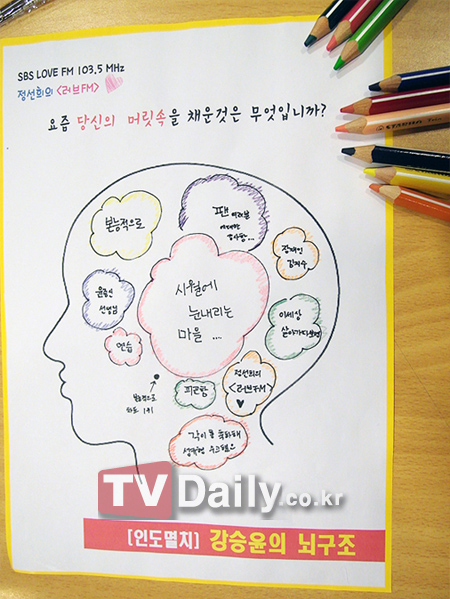 SBS LOVE FM 103.5 MHz
정선희의 <러브FM>
요즘 당신의 머릿속을 채운것은 무엇입니까?
본능적으로
팬 여러분
사랑...
장재인
김지수
윤종신
선생님
시월에
눈내리는
마을 ....
이세상
살아가다보면
연습
본능적으로
차트 1위
피곤함
정선희의
<러브FM>
TVDaily.co.kr
[인도멸치] 강승윤의 뇌구조
STABILO